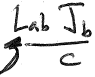 L_{ab} J_b
c